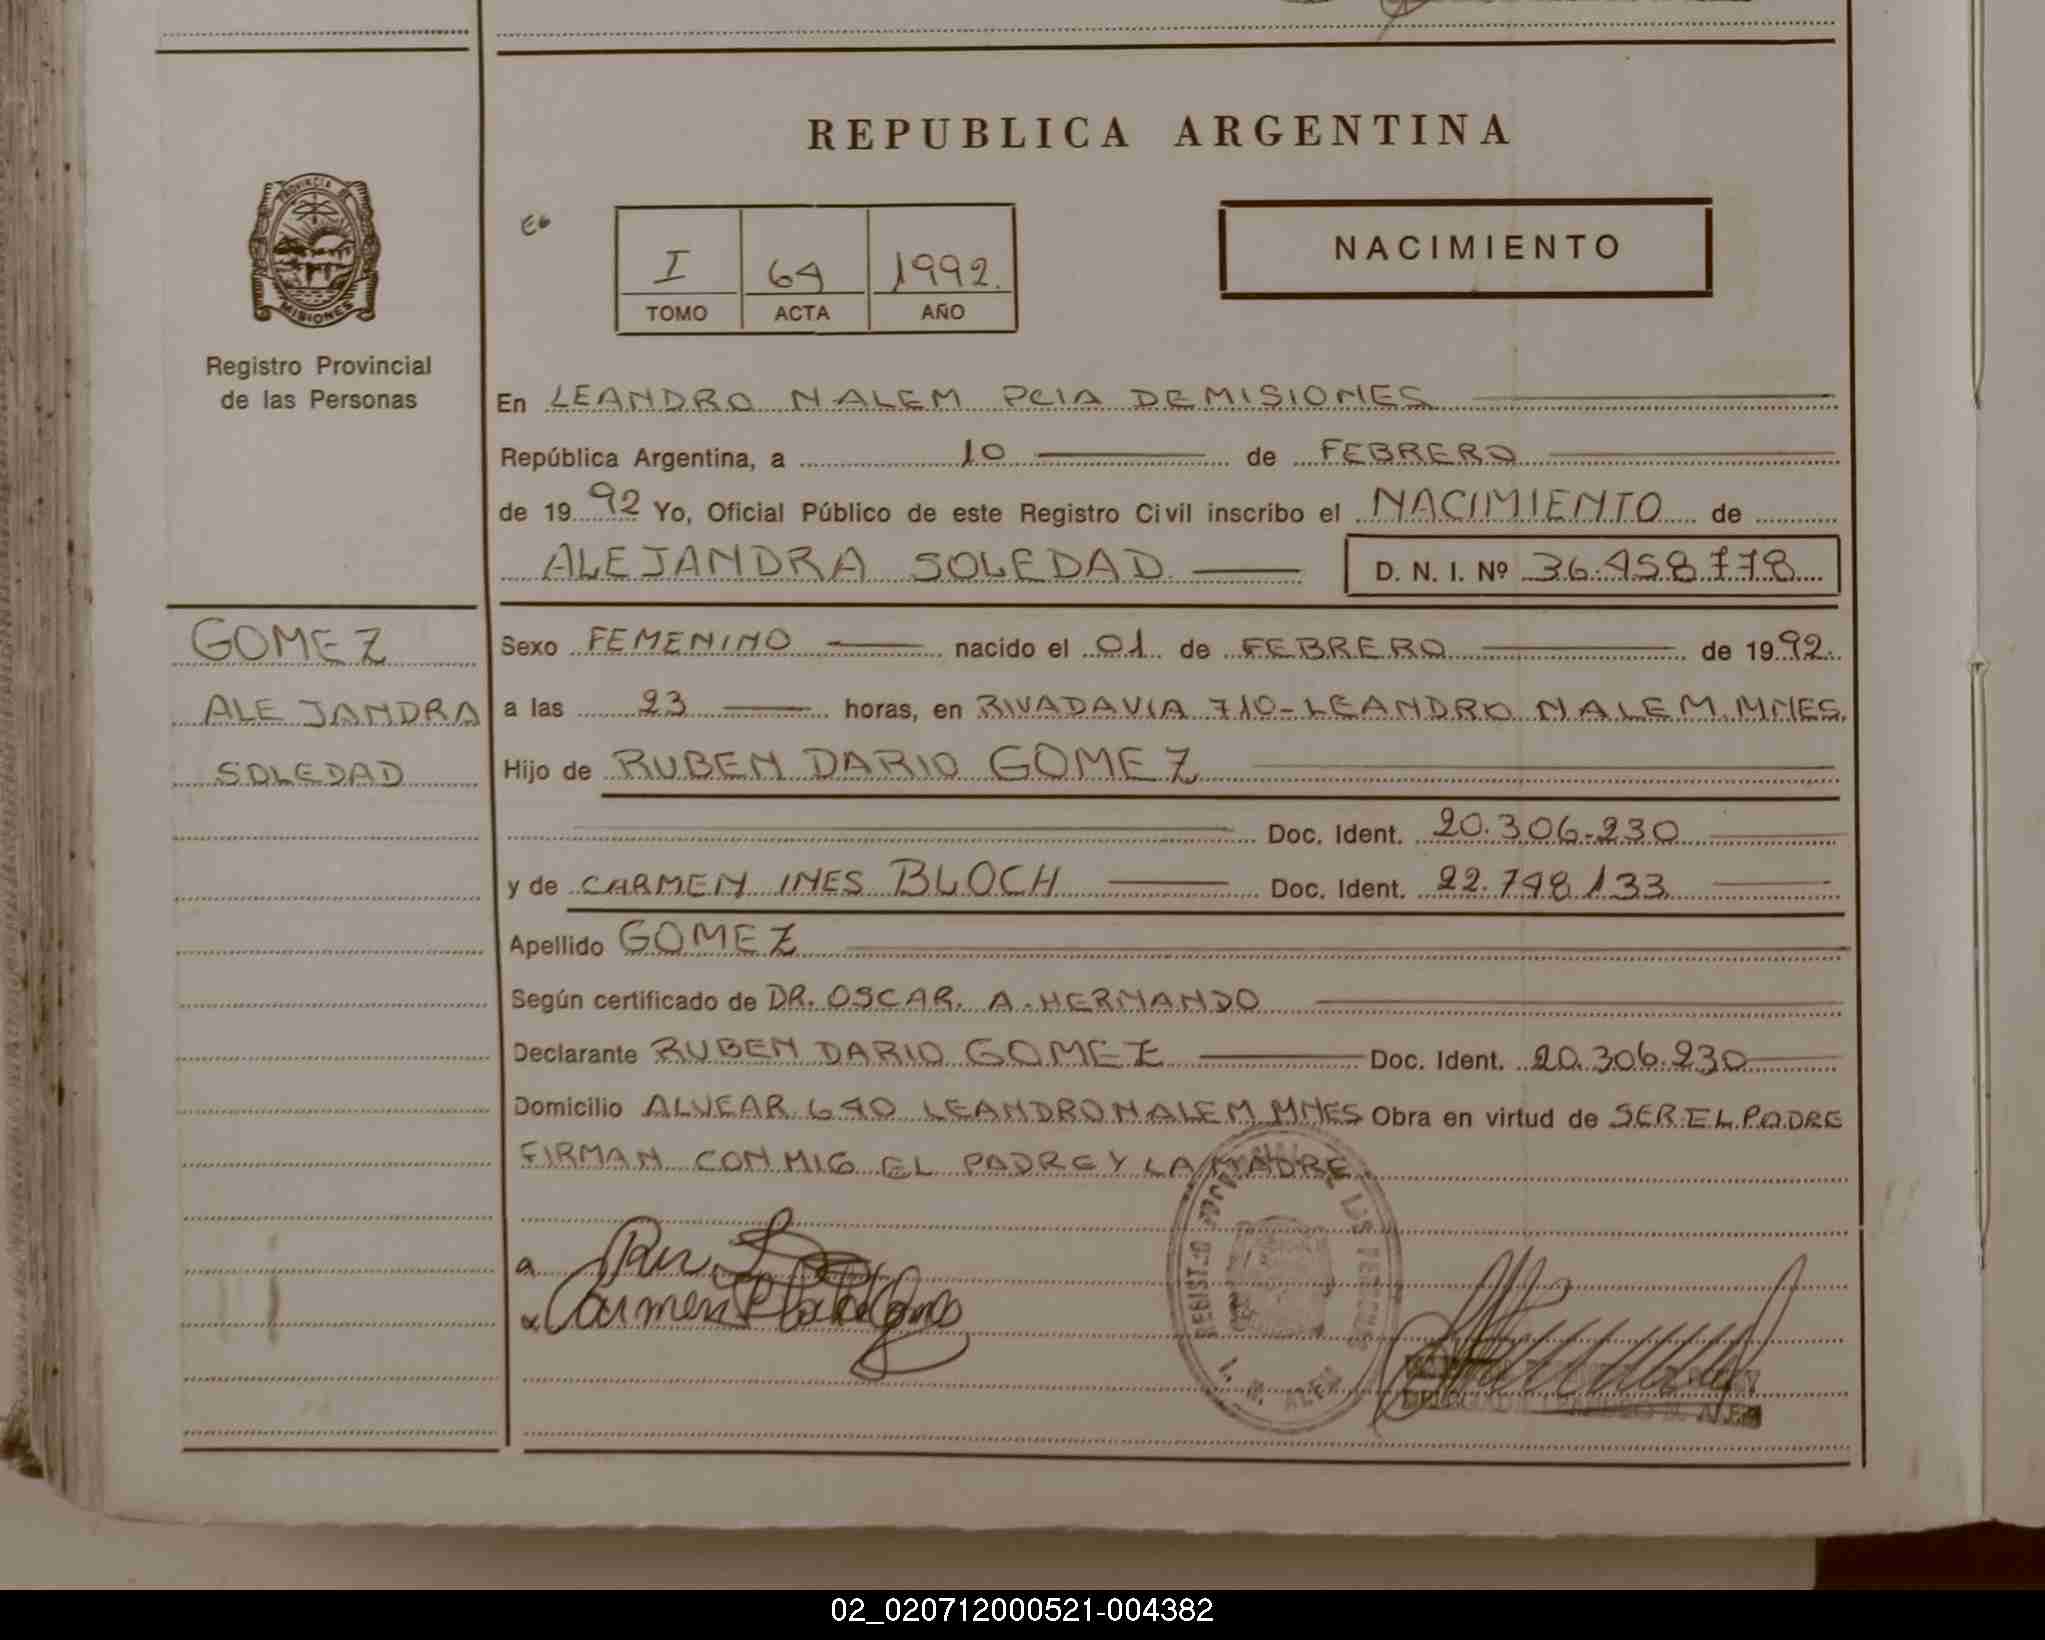 REPUBLICA ARGENTINA
PROVINCIA DE
MISIONES
Registro Provincial
de las Personas
I 64 1992.
TOMO ACTA AÑO
NACIMIENTO
En LEANDRO N ALEM PCIA DE MISIONES
República Argentina, a 10 de FEBRERO
de 1992 Yo, Oficial Público de este Registro Civil inscribo el NACIMIENTO de
ALEJANDRA SOLEDAD D. N. I. Nº 36.458.778
GOMEZ
ALEJANDRA
SOLEDAD
Sexo FEMENINO nacido el 01 de FEBRERO de 1992.
a las 23 horas, en RIVADAVIA 710-LEANDRO N ALEM. MNES.
Hijo de RUBEN DARIO GOMEZ
Doc. Ident. 20.306.230
y de CARMEN INES BLOCH Doc. Ident. 22.748.133
Apellido GOMEZ
Según certificado de DR. OSCAR. A. HERNANDO
Declarante RUBEN DARIO GOMEZ Doc. Ident. 20.306.230
Domicilio ALVEAR 640 LEANDRO N ALEM MNES Obra en virtud de SER EL PADRE
FIRMAN CON MIG EL PADRE Y LA MADRE.
REGISTRO LAS PERSONAS
L. N. ALEM
Carmen
02_020712000521-004382